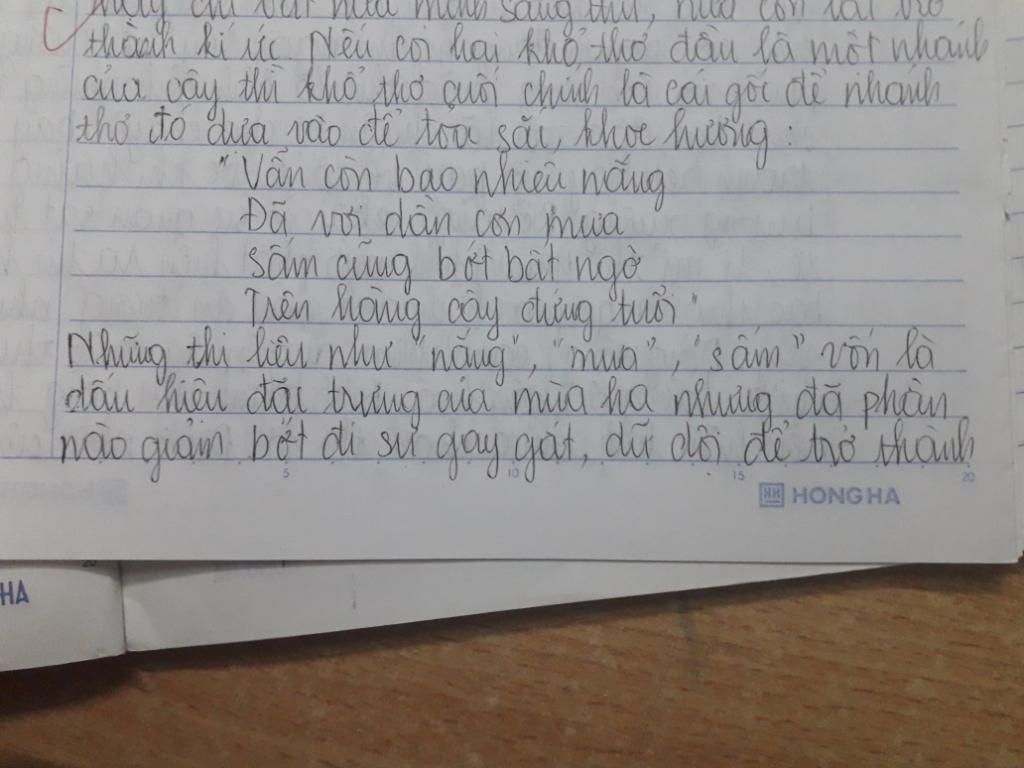 mây chỉ vắt nửa mình sang thu, nửa còn lại trở
thành kí ức. Nếu coi hai khổ thơ đầu là một nhánh
của cây thì khổ thơ cuối chính là cái gốc để nhánh
thơ đó dựa vào để tỏa sắc, khoe hương:
"Vẫn còn bao nhiêu nắng
Đã vơi dần cơn mưa
Sấm cũng bớt bất ngờ
Trên hàng cây đứng tuổi"
Những thi liệu như "nắng", "mưa", "sấm" vốn là
dấu hiệu đặc trưng của mùa hạ nhưng đã phần
nào giảm bớt đi sự gay gắt, dữ dội để trở thành
5 10 15 20
HONG HA
20
HA